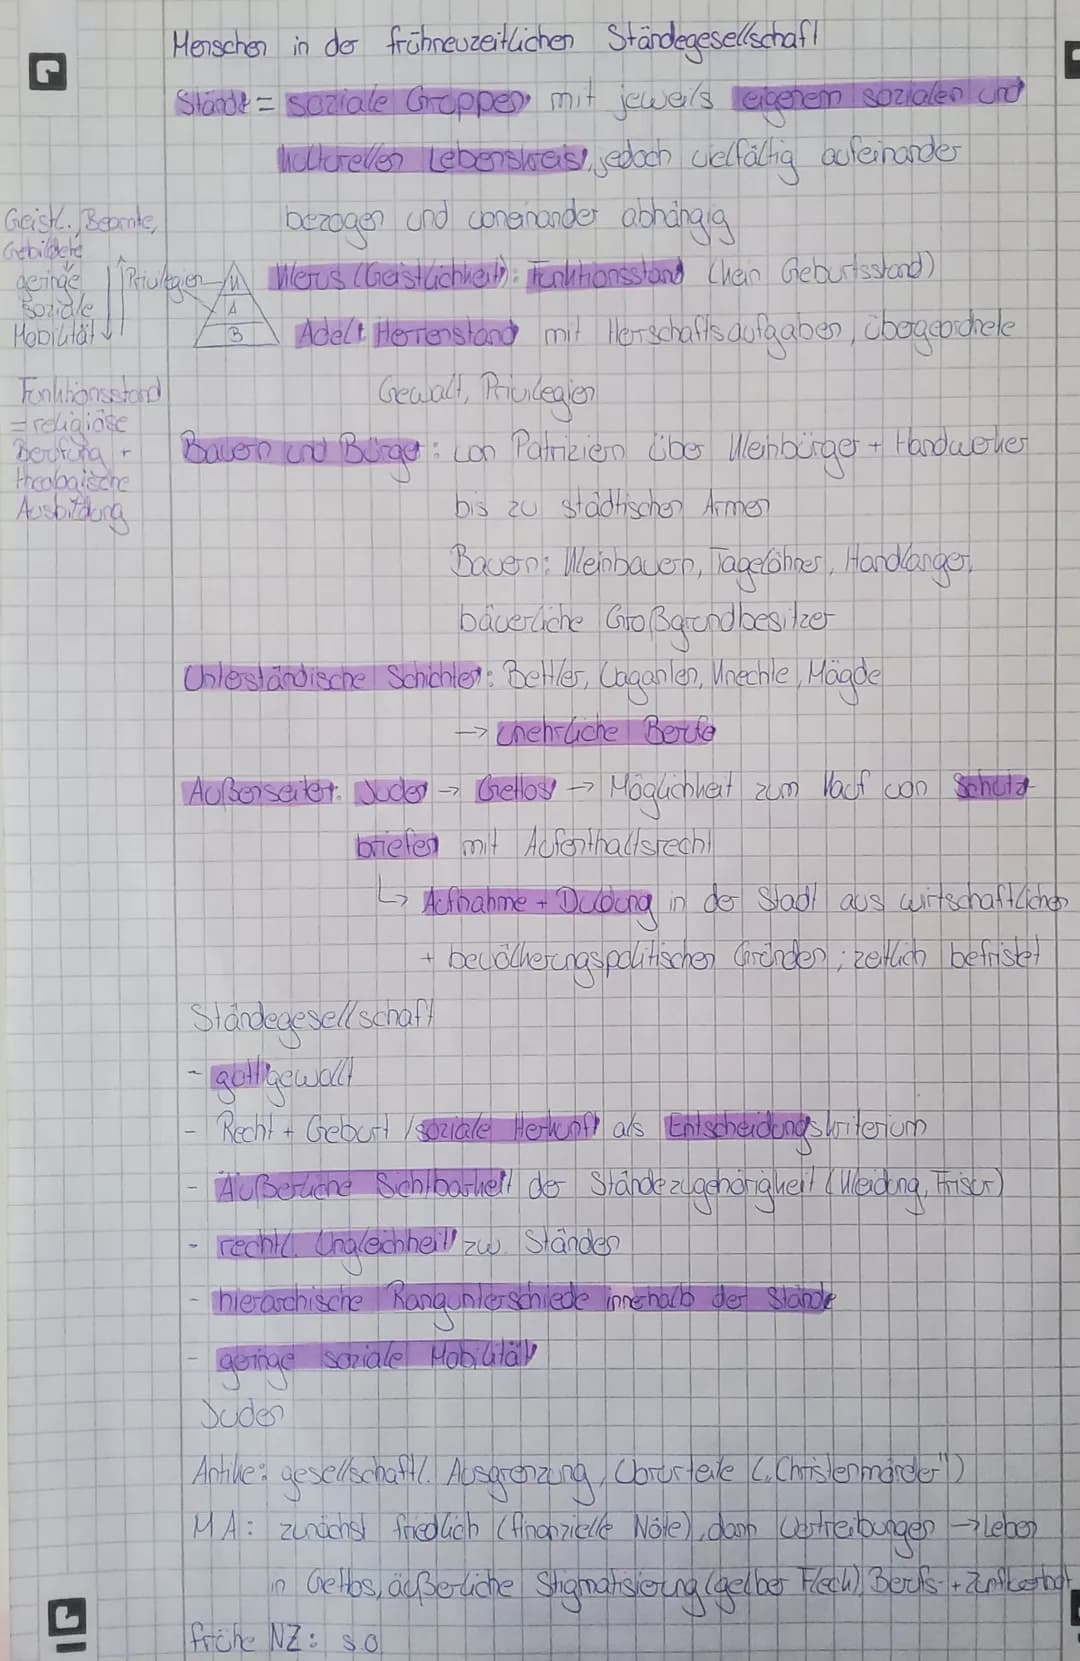 Menschen in der frühneuzeitlichen Ständegesellschaft
Stände = soziale Gruppen mit jeweils eigenem sozialen und
kulturellen Lebenskreis, jedoch vielfältig aufeinander
bezogen und voneinander abhängig
Geistl., Beamte,
Gebildete
geringe
soziale
Mobilität
Privilegien
K
A
B
Klerus (Geistlichkeit): Funktionsstand (kein Geburtsstand)
Adel: Herrenstand mit Herrschaftsaufgaben, übergeordnete
Gewalt, Privilegien
Funktionsstand
= religiöse
Berufung +
theologische
Ausbildung
Bauern und Bürger: von Patriziern über Kleinbürger + Handwerker
bis zu städtischen Armen
Bauern: Kleinbauern, Tagelöhner, Handlanger,
bäuerliche Großgrundbesitzer
Unterständische Schichten: Bettler, Vaganten, Knechte, Mägde
→ unehrliche Berufe
Außenseiter: Juden → Gettos → Möglichkeit zum Kauf von Schutz-
briefen mit Aufenthaltsrecht
↳ Aufnahme + Duldung in der Stadt aus wirtschaftlichen
+ bevölkerungspolitischen Gründen; zeitlich befristet
Ständegesellschaft
- gottgewollt
- Recht + Geburt / soziale Herkunft als Entscheidungskriterium
- Äußerliche Sichtbarkeit der Ständezugehörigkeit (Kleidung, Frisur)
- rechtl. Ungleichheit zw. Ständen
- hierarchische Rangunterschiede innerhalb der Stände
- geringe soziale Mobilität
Juden
Antike: gesellschaftl. Ausgrenzung, Vorurteile („Christenmörder")
MA: zunächst friedlich (finanzielle Nöte), dann Vertreibungen → Leben
in Gettos, äußerliche Stigmatisierung (gelber Fleck), Berufs- + Zunftverbot
frühe NZ: s.o.